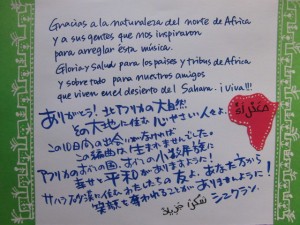 Gracias a la naturaleza del norte de Africa
y a sus gentes que nos inspiraron
para arreglar ésta música.
Gloria y Salud para los países y tribus de Africa
y sobre todo para nuestros amigos
que viven en el desierto del Sahara. ¡Viva!!!
ありがとう! 北アフリカの大自然
その大地に住む 心やさしい人々よ。
この10日間の出会いがなければ
この編曲は生まれませんでした。
アフリカのすべての国、すべての少数民族に
幸せと平和がありますように!
サハラ沙漠に住むわたしたちの友よ、あなた方から
笑顔を奪われることがありませんように!
シュクラン.